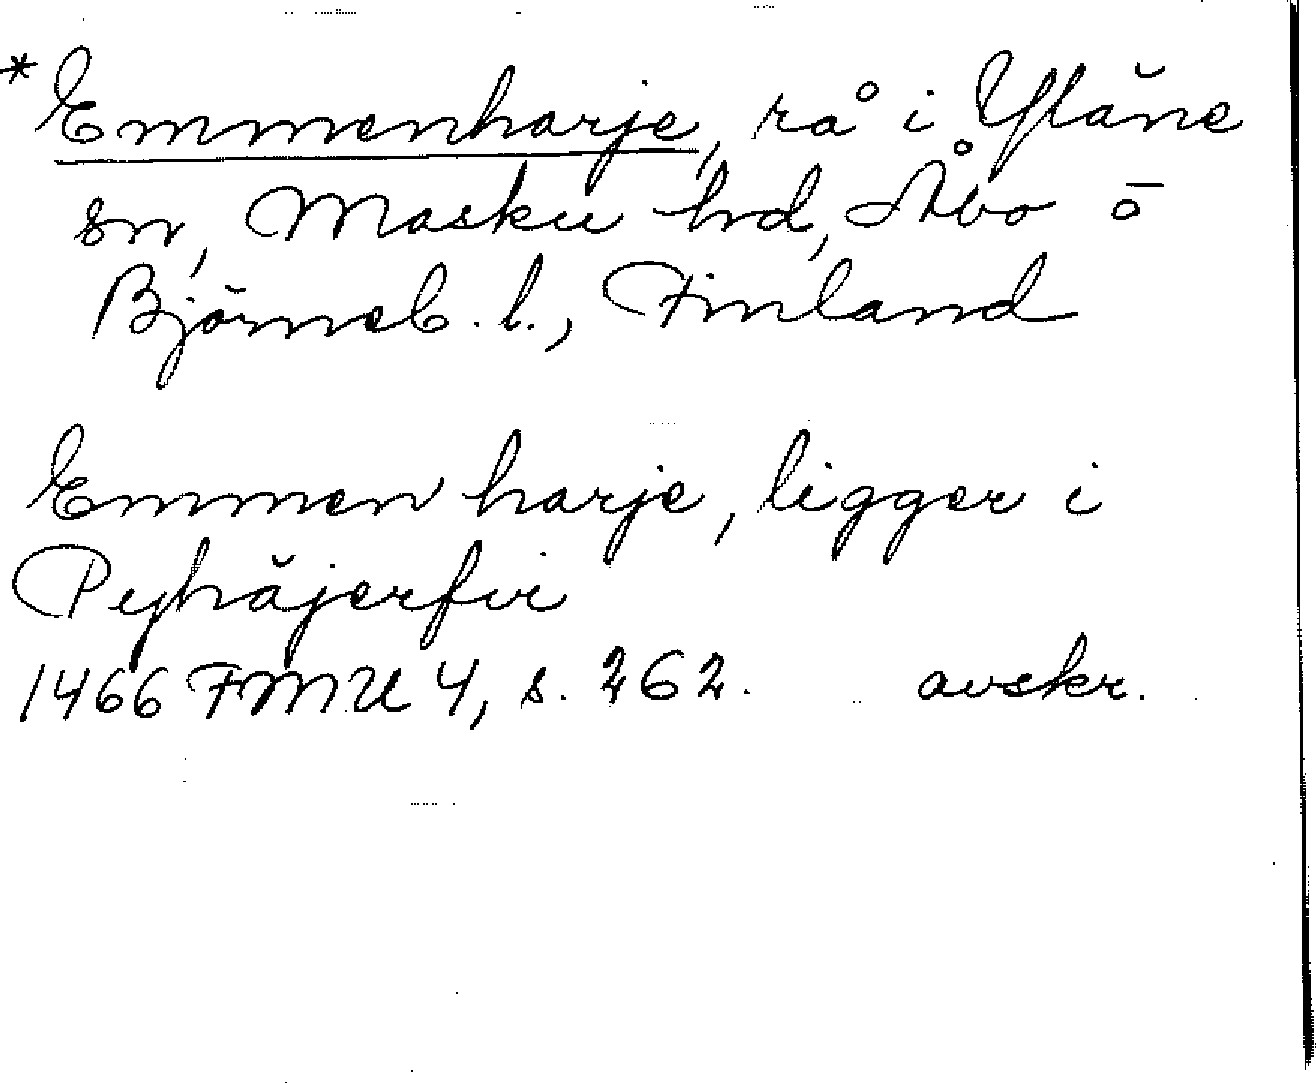 *Emmenharje, rå i Yläne
sn, Masku hd, Åbo ō
Björneb. l., Finland
Emmen harje, ligger i
Peyhäjerfvi
1466 FMU 4, s. 262. avskr.